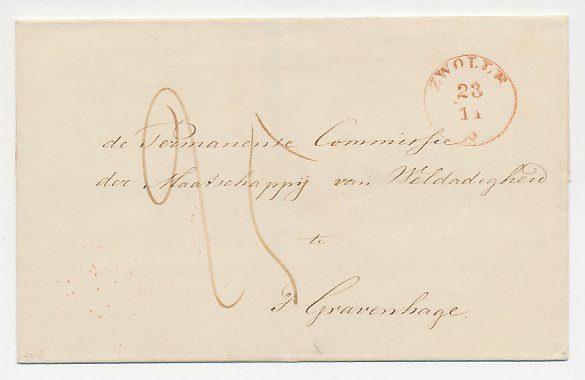 ZWOLLE
23
11
de Permanente Commissie
der Maatschappij van Weldadigheid
te
's Gravenhage.